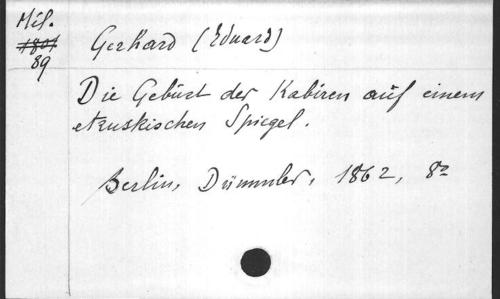 Mil.
1801
89
Gerhard (Eduard)
Die Gebürt der Kabiren auf einem
etruskischen Spiegel.
Berlin, Dümmler, 1862, 8º